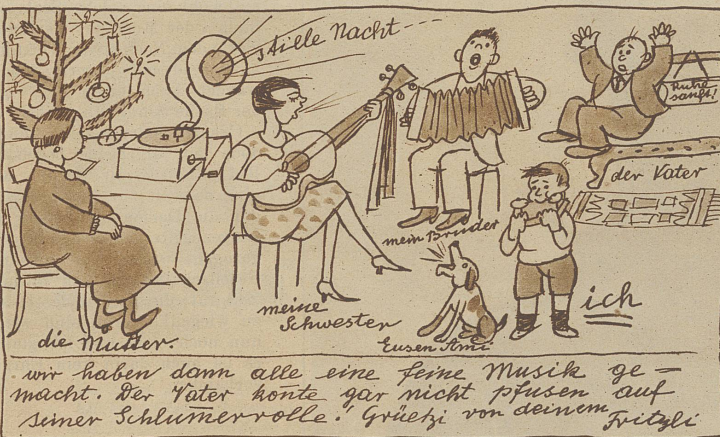 stille Nacht----
Ruhe
sanft!
der Vater
mein Bruder
ich
meine
Schwester
die Mutter.
Eusen Ami
wir haben dann alle eine feine Musik ge=
macht. Der Vater kon̄te gar nicht pfusen auf
seiner Schlum̄errolle! Grüetzi von deinem Fritzli